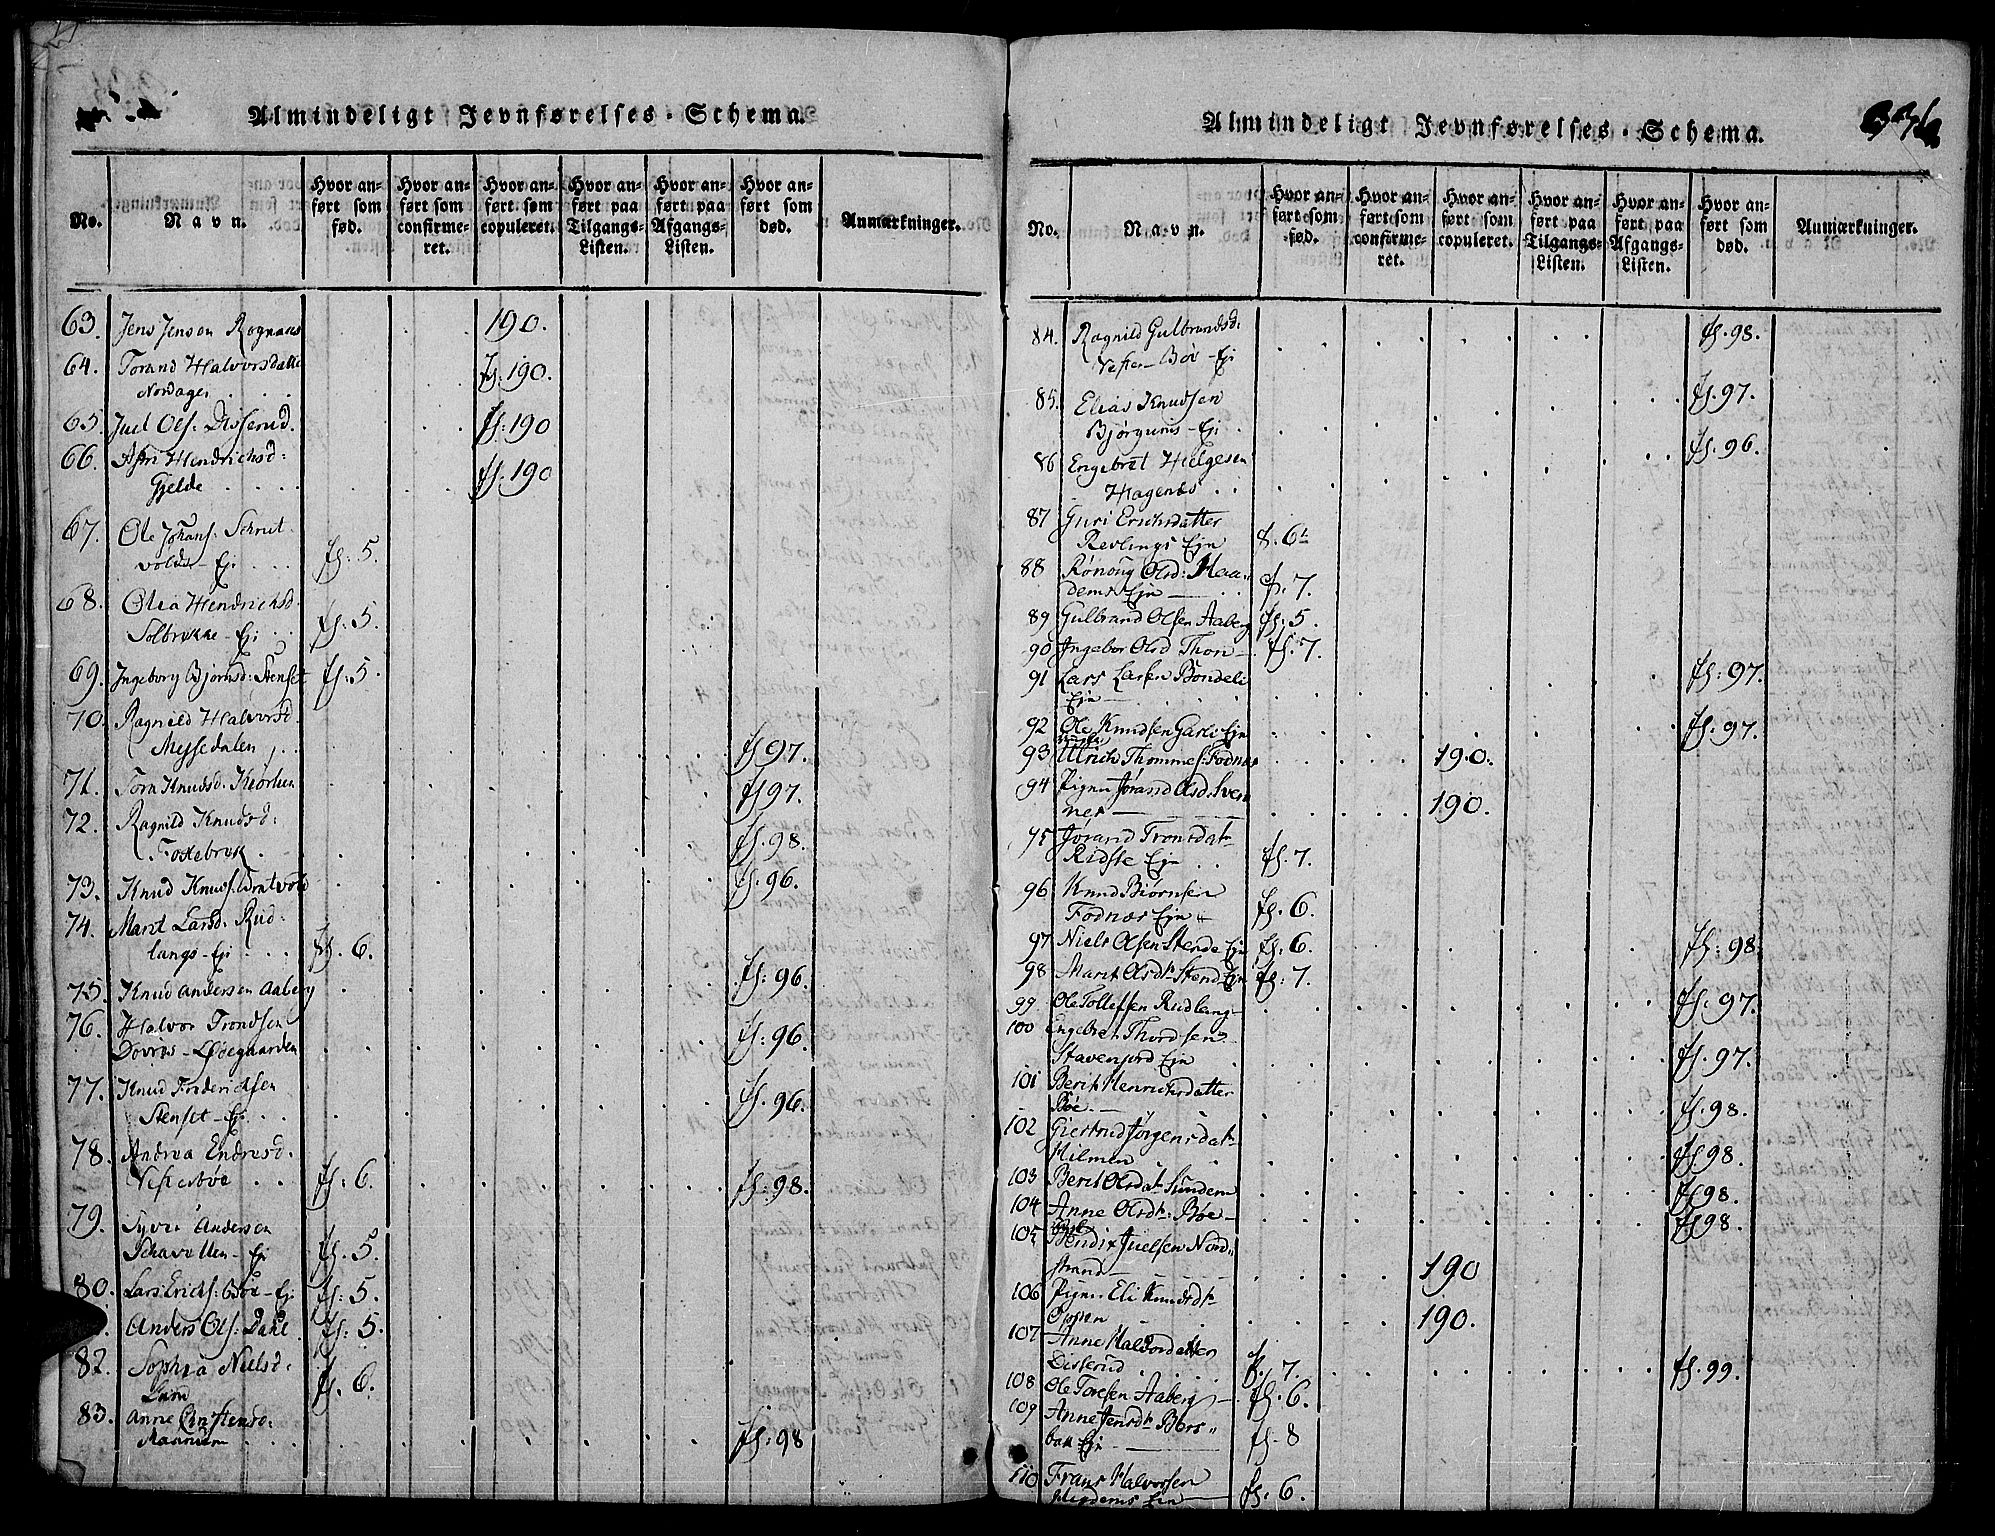 Almindeligt Jevnførelses-Schema.
No.
Navn.
Hvor anført som fød.
Hvor anført som confirmeret.
Hvor anført som copuleret.
Hvor anført paa Tilgangs-Listen.
Hvor anført paa Afgangs-Listen.
Hvor anført som død.
Anmærkninger.
63. Jens Jenson Rognaas 190.
64. Torand Halvorsdatte
Nordager fs: 190.
65. Juel Ols. Disserud. fs: 190
66. Hendrichsd:
Gjelde fs. 190
67. Ole Johans. Schrut
volds-Ej. fs: 5.
68. Olia Hendrichsd.
Solbrække-Ej. fs: 5.
69. Ingeborg Bjørnsd: Stenset fs: 5.
70. Ragnild Halvorsd.
Myssedalen fs 97.
71. Torn Knudsd. fs 97.
72. Ragnild Knudsd:
fs. 98.
73. Knud Knuds. fs. 96.
74. Marit Larsd: Rud
langs-Ej fs. 6.
75. Knud Andersen Aaberg fs: 96.
76. Halvor Trondsen
Døvres-Ødegaarden fs: 96.
77. Knud Frederichsen
Stenset-Ej. fs. 96.
78. Andrea Endresd.
Vesterbøe fs. 6. fs: 98.
79. Syver Andersen
Ej fs. 5.
80. Lars Erichs: Bøe-Ej fs: 5.
Anders Ols. Dahl fs: 5.
82. Sophia Nielsd.
fs. 6.
83. Anne Christensd:
fs: 98
Almindeligt Jevnførelses-Schema.
No.
Navn.
Hvor anført som fød.
Hvor anført som confirmeret.
Hvor anført som copuleret.
Hvor anført paa Tilgangs-Listen.
Hvor anført paa Afgangs-Listen.
Hvor anført som død.
Anmærkninger.
84. Ragnild Gulbrandsd:
Vester Bøe-Ej fs. 98.
85. Elias Knudsen
Bjørgums-Ej. fs. 97.
86 Engebret Helgesen
Hagenæs fs. 96.
87 Guri Erichsdatter
Revlings Ejn 6
88 Rønoug Olsd: Haa
dems Ejn fs. 7.
89 Gulbrand Olsen Aaberg fs: 5.
90 Ingebor Olsd Thon fs: 7.
91 Lars Larsen Bondeli
Ejn fs: 97.
92 Ole Knudsen Garli Ejn fs: 97.
93 Ulrich Thommes. Fodnæs 190.
94 Pigen Jørand Olsd: Sven
nes 190.
95 Jørand Tronsdatr
Ridste Ejn fs. 7.
96 Knud Biørnsen
Fodnæs Ejn fs. 6.
97 Niels Olsen Stende Ejn fs: 6. fs: 98
98 Marit Olsdr Stend Ejn fs: 7.
99. Ole Tollefsen Rudlang fs. 97.
100 Engebret Thordsen
Stavenjord Ejn fs. 97.
101 Berit Henrichsdatter
Bøe fs. 98.
102 Giertrud Jørgensdatr
Hilmen fs. 98.
103 Berit Olsdatr Sundem fs 98.
104 Anne Olsdr. Bøe fs 98.
105 Bendix Juelsen Nord
strand 190
106 Pigen Eli Knudsdr
Oppen 190.
107 Anne Halvordatter
Disserud fs. 7. fs. 99.
108 Ole Toresen Aaberg fs. 6.
109 Anne Jensdr Bers
bak Ejn fs. 8
110 Frans Halvorsen
Ejn fs. 6.